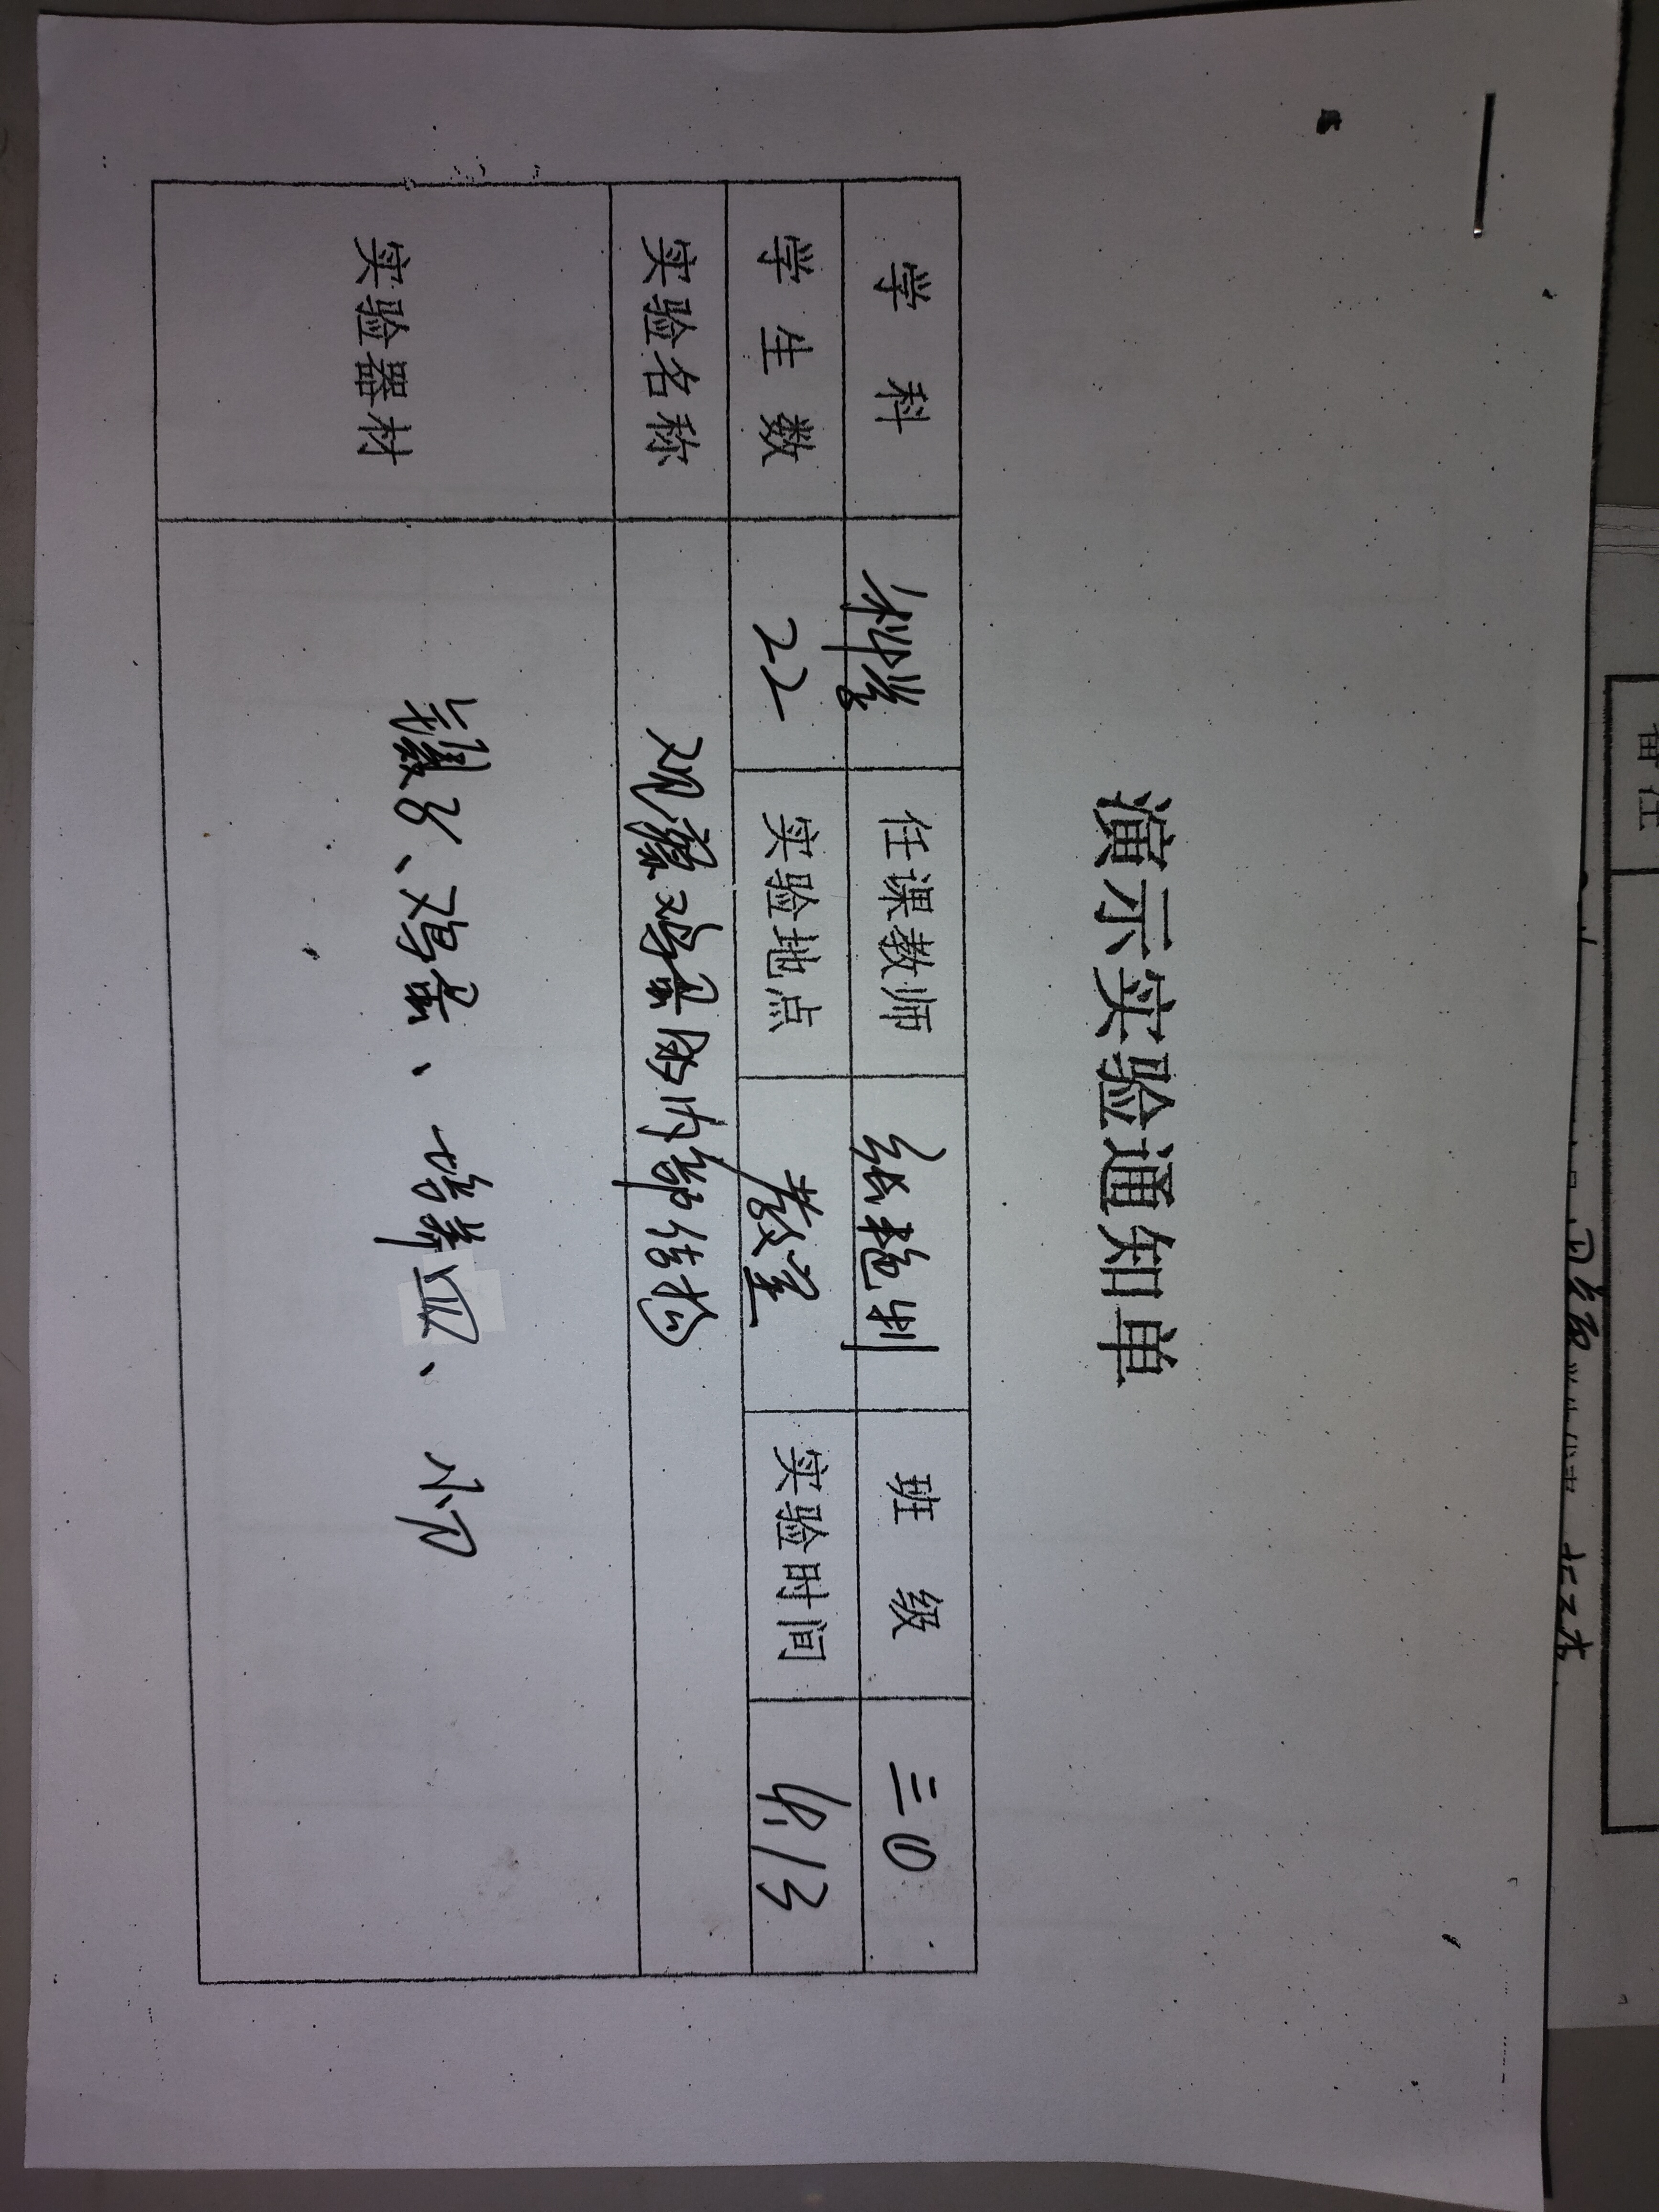 演示实验通知单
学科 科学 任课教师 张艳利 班级 三(1)
学生数 22 实验地点 教室 实验时间 4.13
实验名称 观察鸡蛋的内部结构
实验器材 镊子、鸡蛋、培养皿、小刀
备注